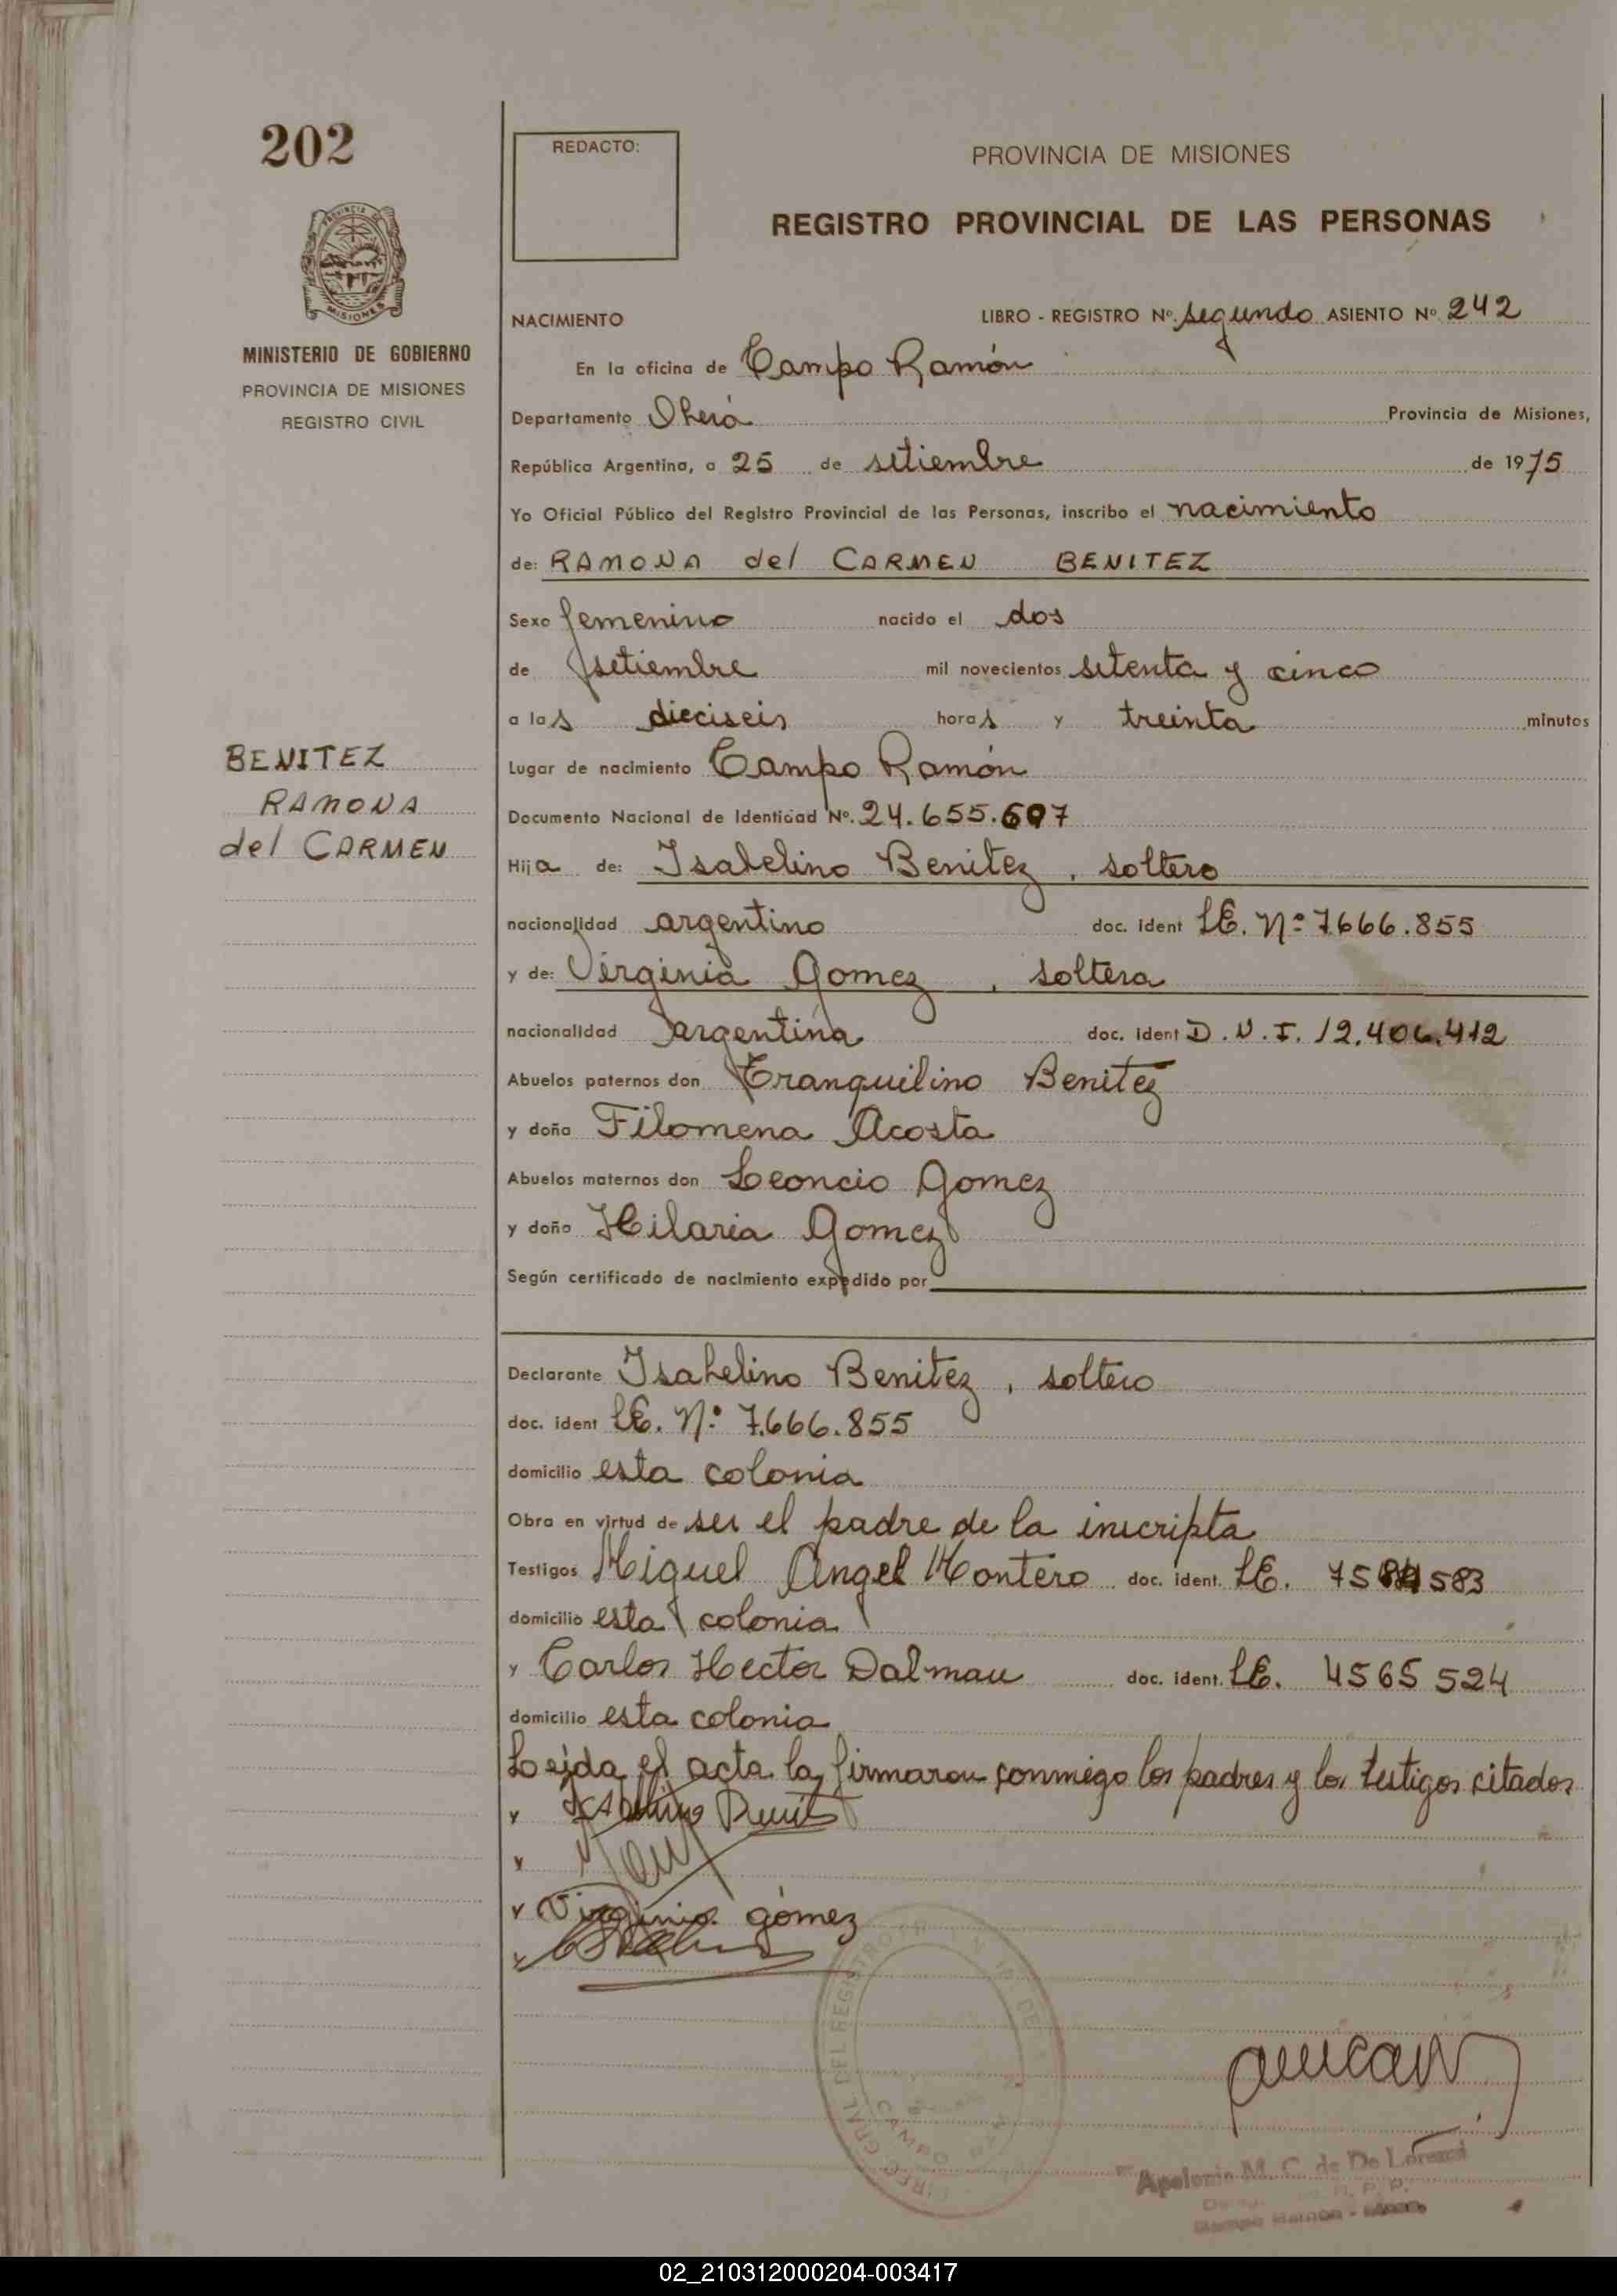 202
REDACTO:
PROVINCIA DE MISIONES
REGISTRO PROVINCIAL DE LAS PERSONAS
PROVINCIA DE
MISIONES
MINISTERIO DE GOBIERNO
PROVINCIA DE MISIONES
REGISTRO CIVIL
NACIMIENTO LIBRO - REGISTRO Nº. segundo ASIENTO Nº 242
En la oficina de Campo Ramón
Departamento Oberá Provincia de Misiones,
República Argentina, a 25 de setiembre de 1975
Yo Oficial Público del Registro Provincial de las Personas, inscribo el nacimiento
de: RAMONA del CARMEN BENITEZ
Sexo femenino nacido el dos
de setiembre mil novecientos setenta y cinco
a las dieciseis horas y treinta minutos
BENITEZ
RAMONA
del CARMEN
Lugar de nacimiento Campo Ramón
Documento Nacional de Identidad Nº. 24.655.607
Hija de: Isabelino Benitez, soltero
nacionalidad argentino doc. ident LE. Nº 7.666.855
y de: Virginia Gomez, soltera
nacionalidad argentina doc. ident D.N.I. 12.406.412
Abuelos paternos don Tranquilino Benitez
y doña Filomena Acosta
Abuelos maternos don Leoncio Gomez
y doña Hilaria Gomez
Según certificado de nacimiento expedido por
Declarante Isabelino Benitez, soltero
doc. ident LE. Nº 7.666.855
domicilio esta colonia
Obra en virtud de ser el padre de la inscripta
Testigos Miguel Angel Montero doc. ident. LE.
domicilio esta colonia
y Carlos Hector Dalmau doc. ident. LE. 4565 524
domicilio esta colonia
Leida el acta la firmaron conmigo los padres y los testigos citados
Virginia gómez
Apolonia M. C. de De Lorenzi
Campo Ramón - Mnes.
02_210312000204-003417